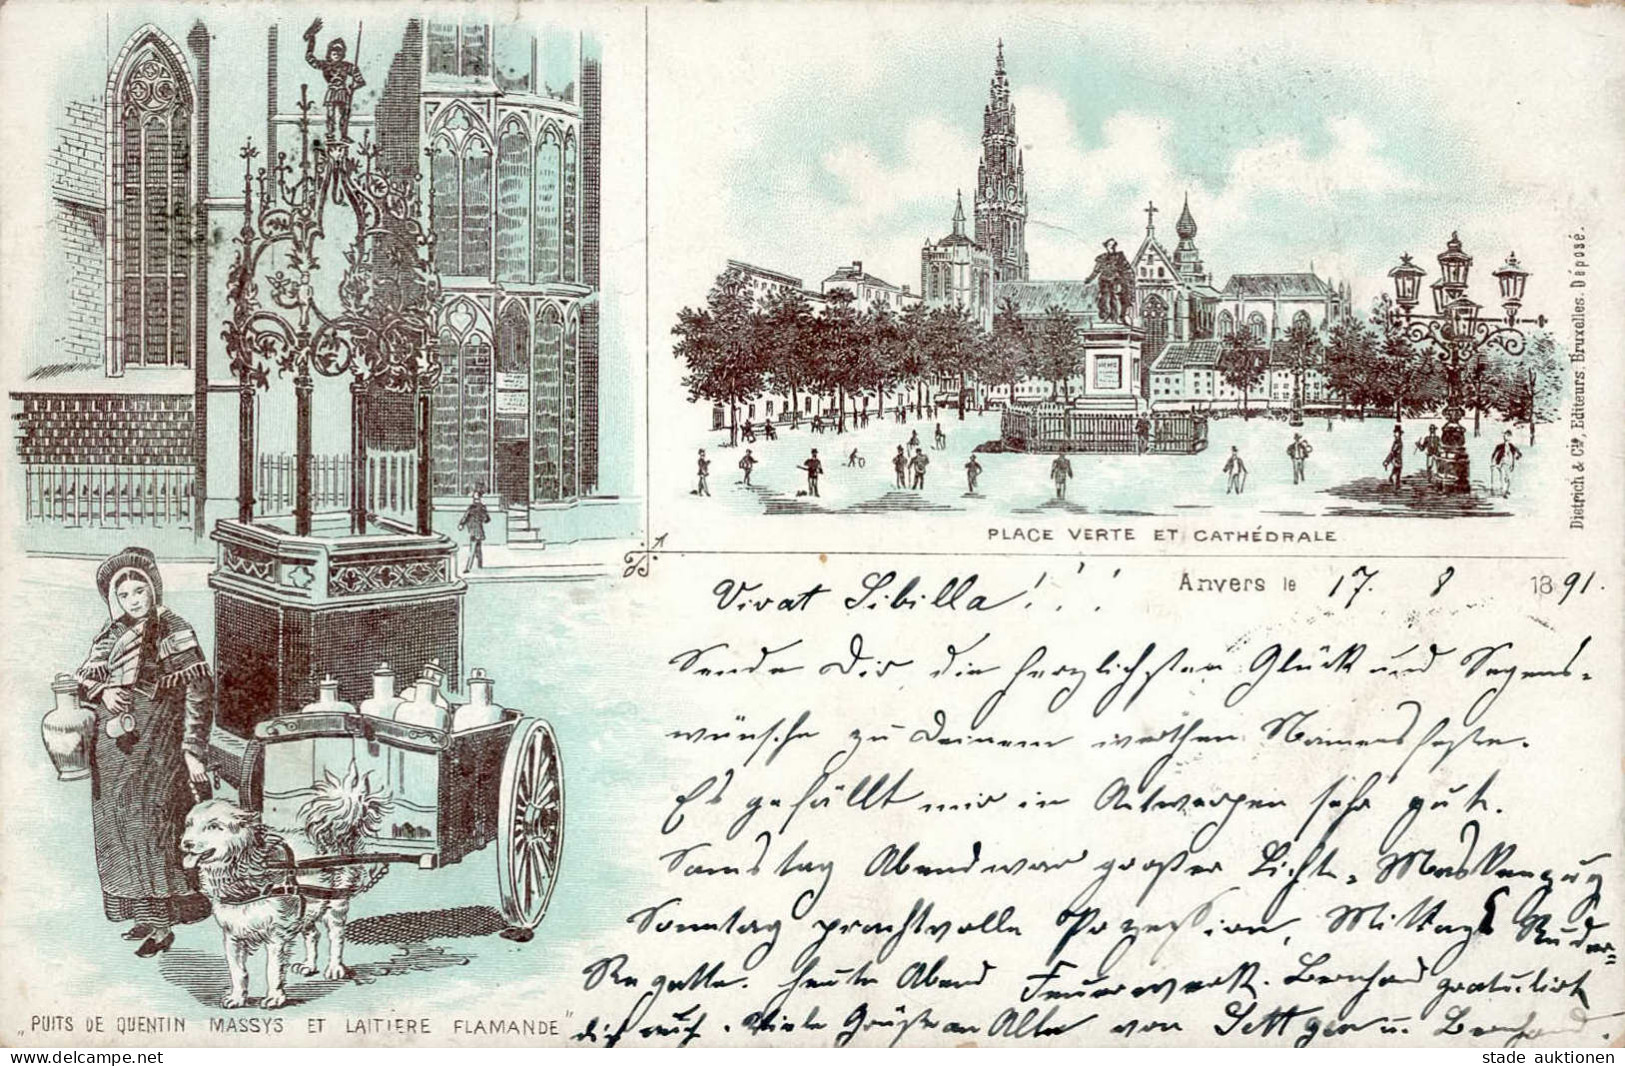 PLACE VERTE ET CATHÉDRALE
Dietrich & Cie, Editeurs. Bruxelles. Déposé.
Anvers le 17. 8 1891.
Vivat Sibilla!!!
Sende Dir die herzlichsten Glück und Segens-
wünsche zu Deinem werthen Namensfeste.
Es gefällt mir in Antwerpen sehr gut.
Samstag Abend war großer Licht-Maskenzug
Sonntag prachtvolle Prozession, Mittags Ruder-
Regatta. heute Abend Feuerwerk. Bernhard gratulirt
dich auch. Viele Grüße an Alle von u. Bernhard.
„PUITS DE QUENTIN MASSYS ET LAITIERE FLAMANDE"
stade auktionen